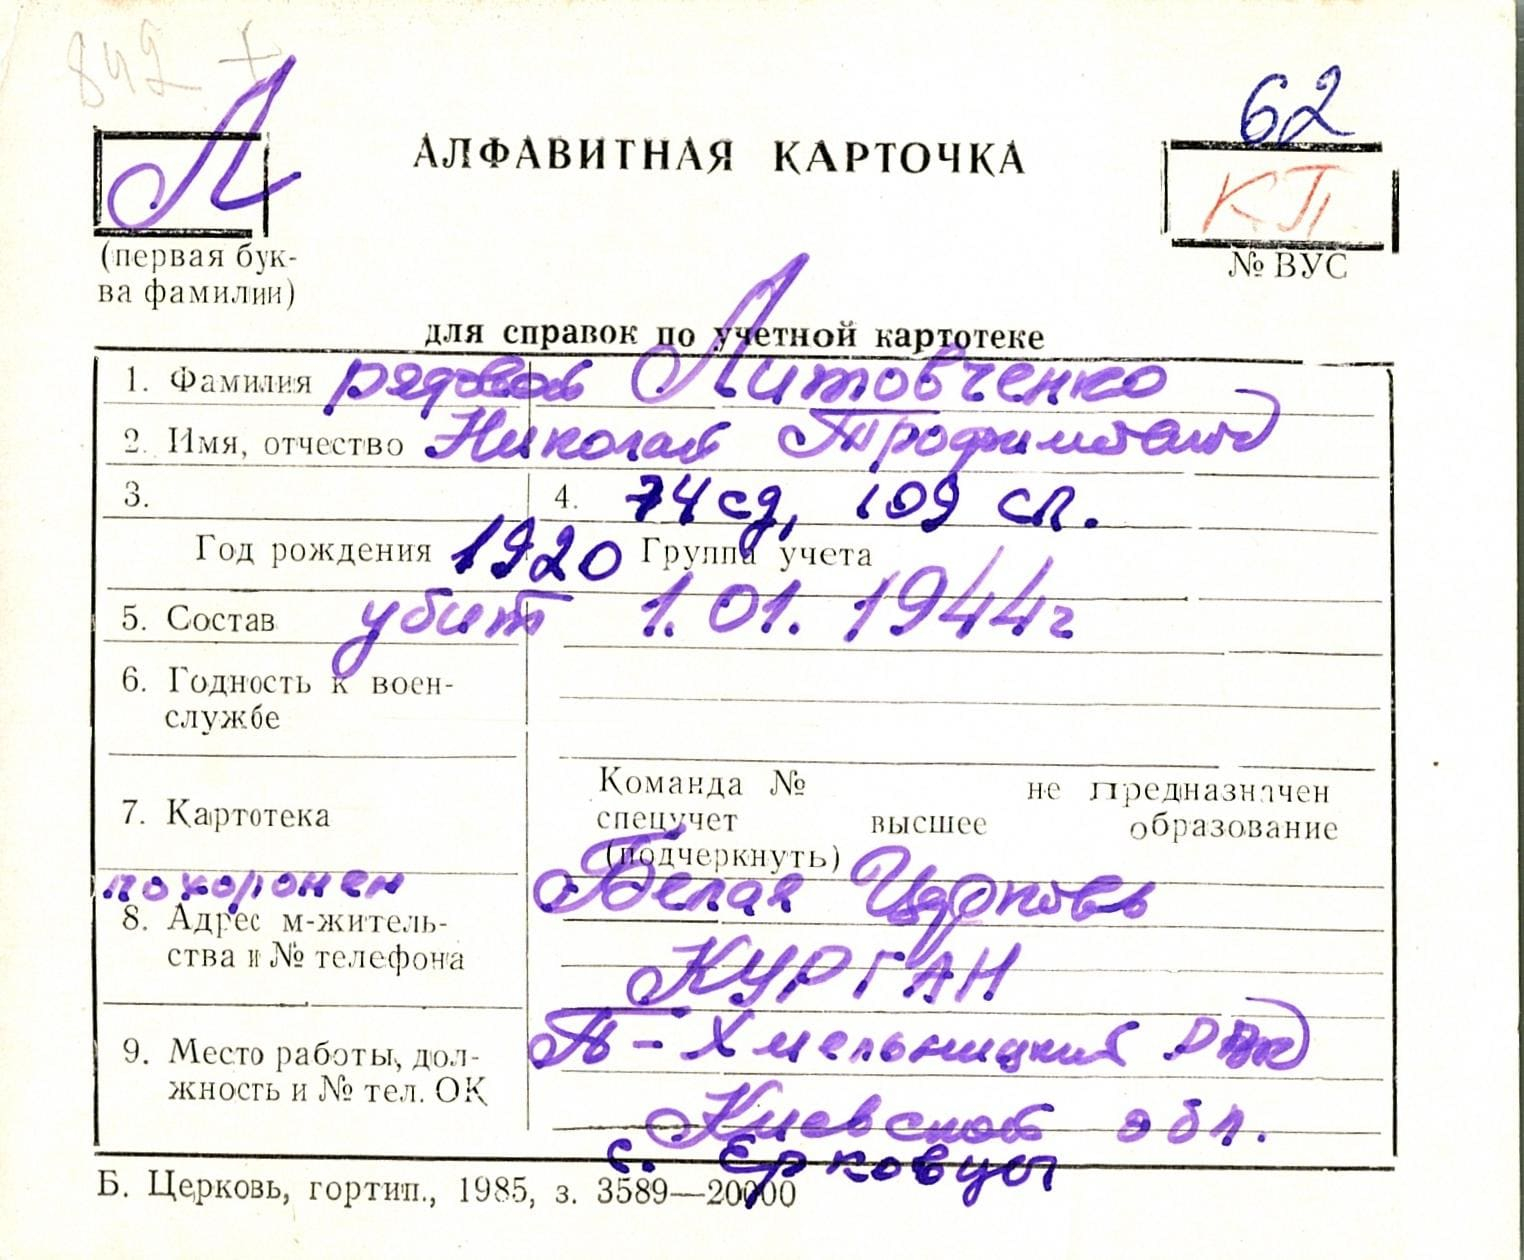 842 +
62
Л
АЛФАВИТНАЯ КАРТОЧКА
КП
(первая бук-
ва фамилии)
№ ВУС
для справок по учетной картотеке
1. Фамилия рядовой Литовченко
2. Имя, отчество Николай Трофимович
3. 4. 74 сд, 109 сп.
Год рождения 1920 Группа учета
5. Состав убит 1.01.1944г
6. Годность к воен-
службе
Команда № не предназначен
7. Картотека спецучет высшее образование
(подчеркнуть)
похоронен Белая Церковь
8. Адрес м-житель-
ства и № телефона КУРГАН
9. Место работы, дол- Б-Хмельницкий
жность и № тел. ОК
Киевской обл.
с. Ерковцы
Б. Церковь, гортип., 1985, з. 3589—20000